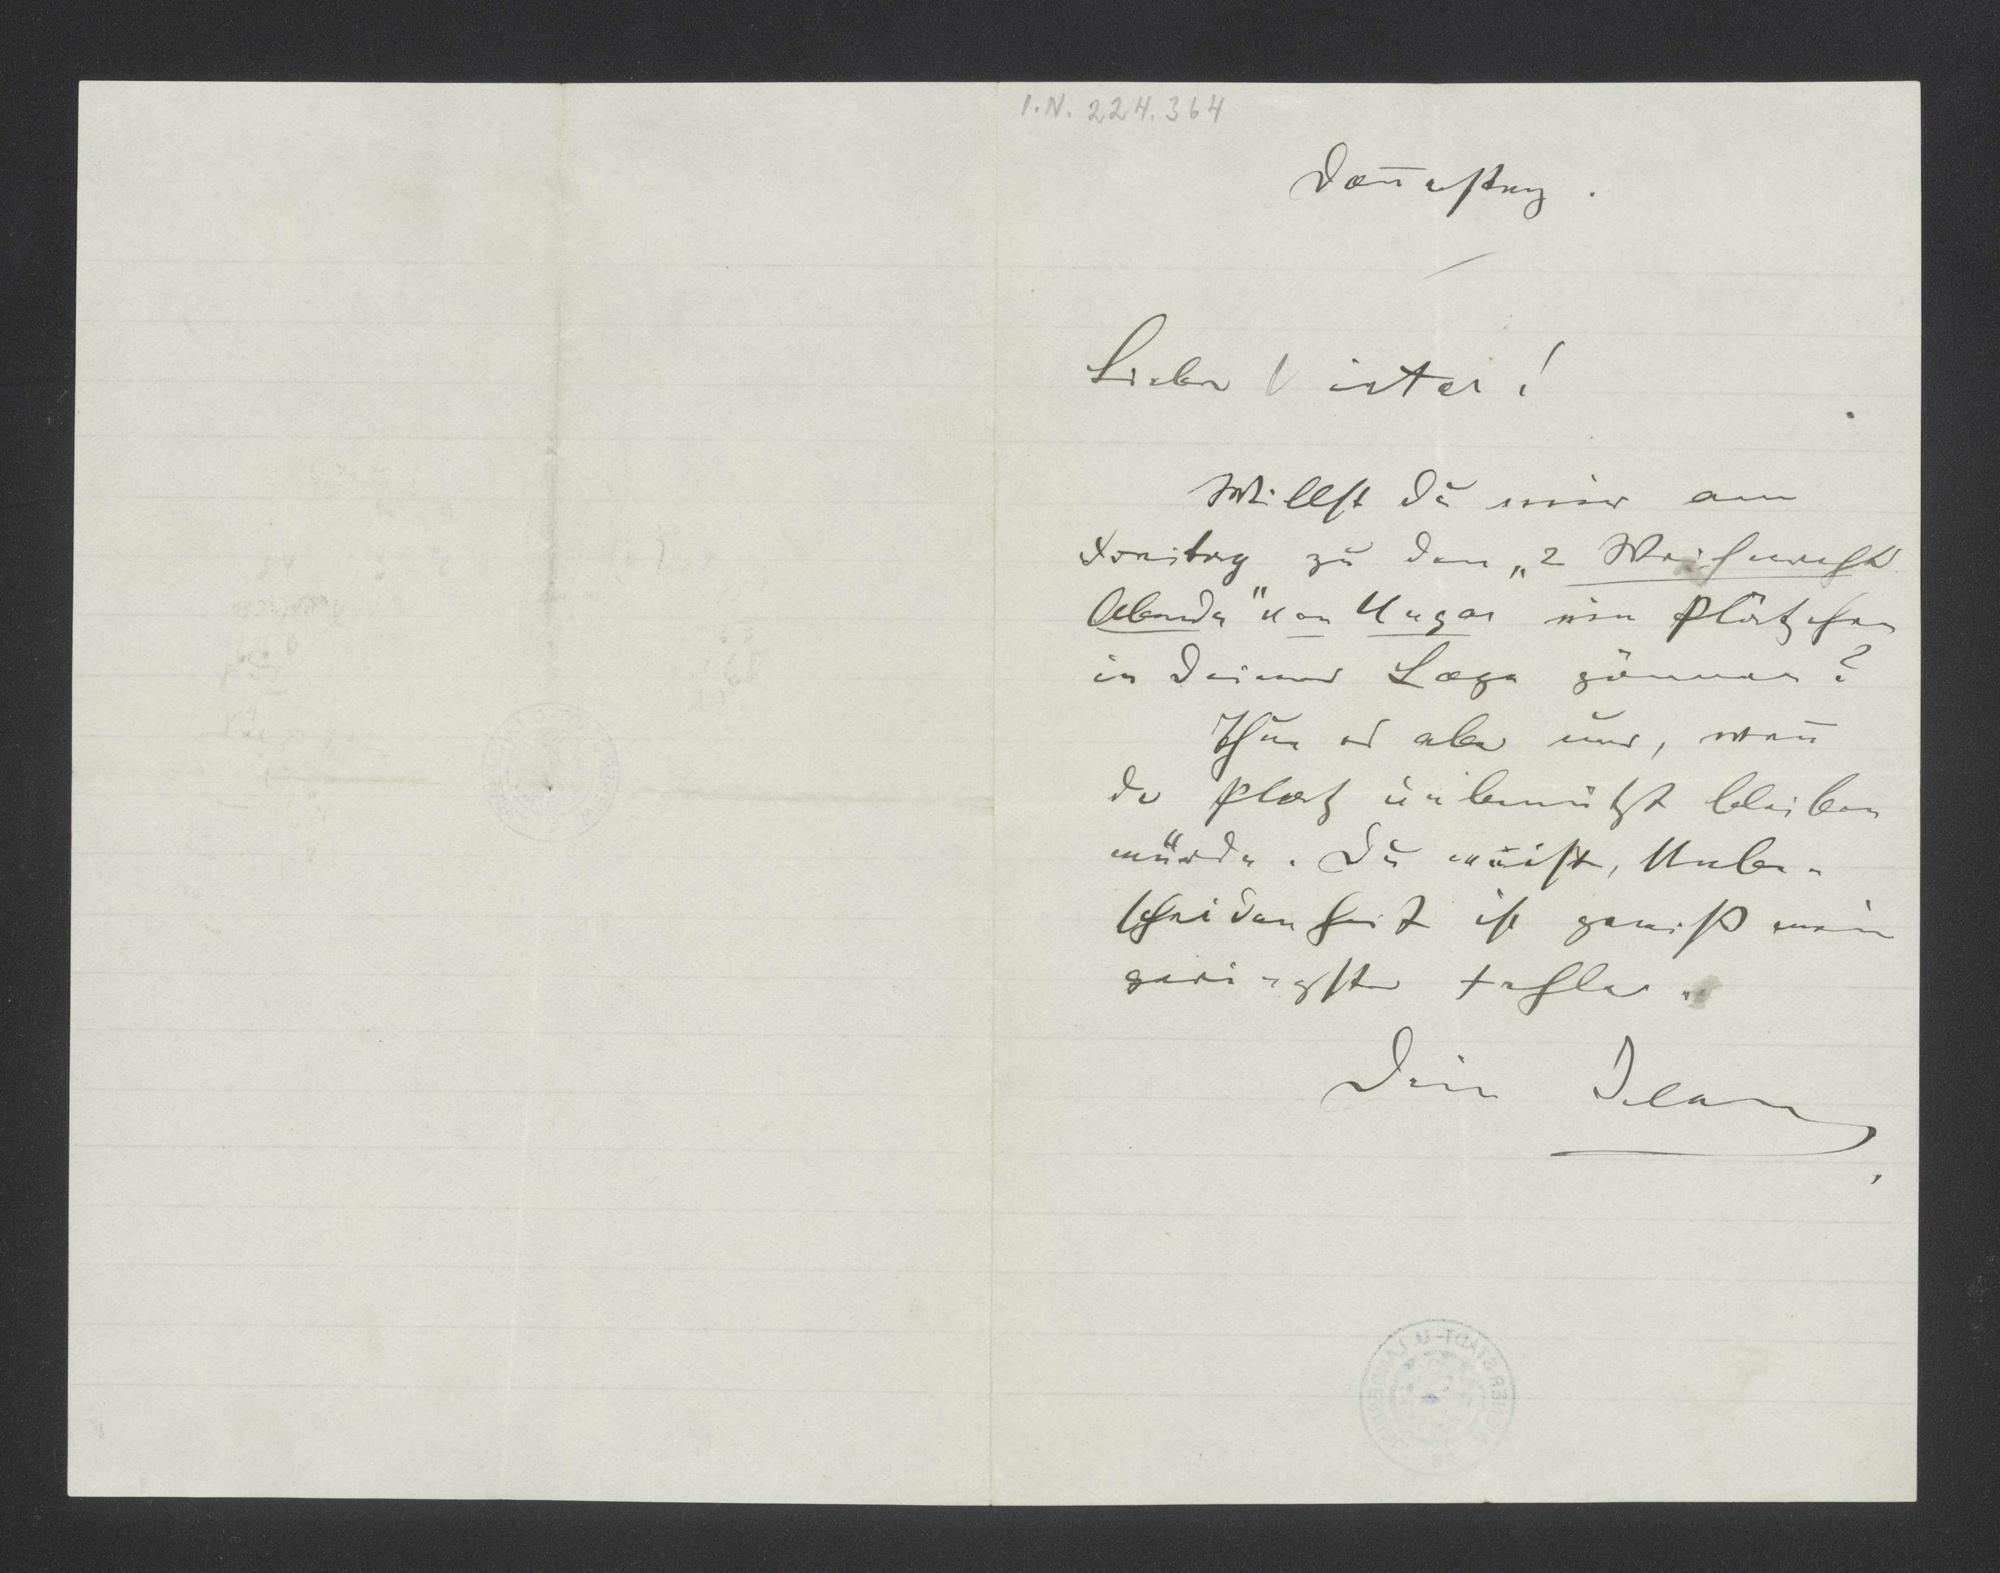 I.N. 224.364
Don̅erstag.
Lieber Victor!
Willst Du mir am
Freitag zu den „2 Weihnacht
Abende" von Ungar ein Plätzchen
in Deiner Loge gönnen?
Thue es aber nur, wen̅
der Platz unbenützt bleiben
würde. Du weißt, Unbe-
scheidenheit ist gewiß mein
geringster Fehler.
Dein
WIENER STADT- U. LANDESBIBLIOTHEK